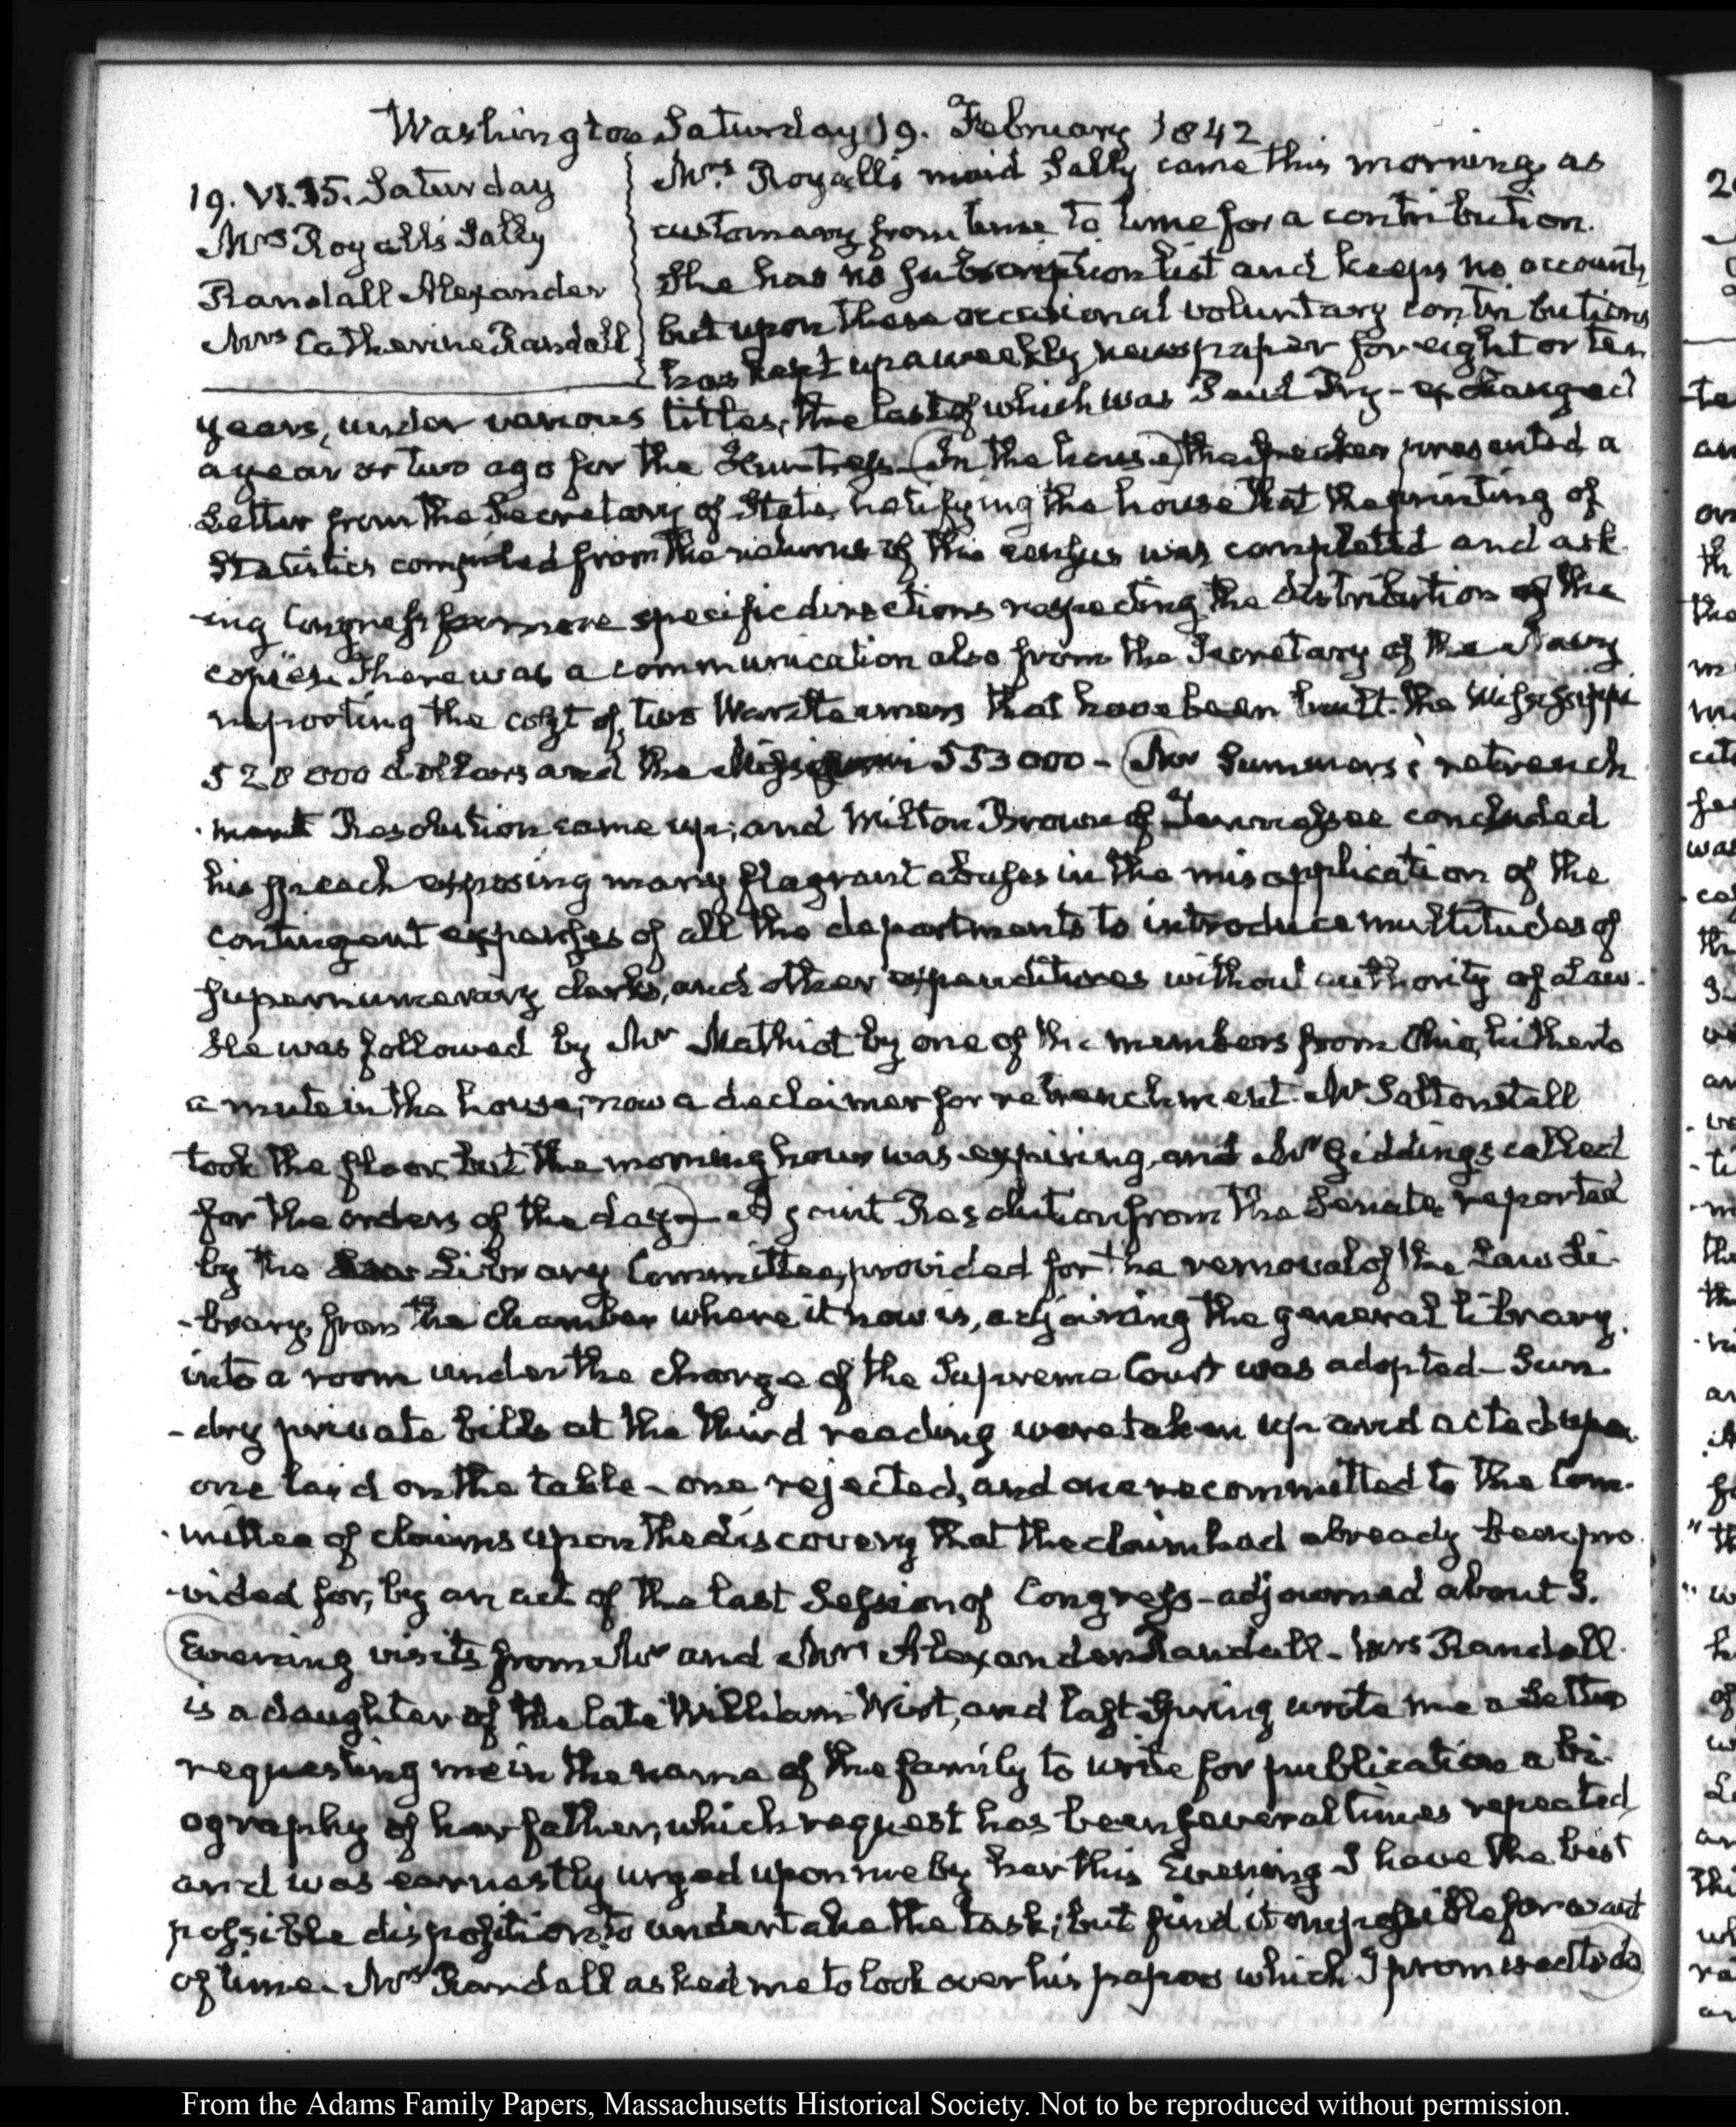 Washington Saturday 19. February 1842
19. VI. 15. Saturday
Mrs Royall's Sally
Randall Alexander
Mrs Catherine Randall
Mrs Royall's maid Sally came this morning as
customary from time to time for a contribution.
She has no subscription list and keeps no accounts,
but upon these occasional voluntary contributions
has kept up a weekly newspaper for eight or ten
years, under various titles, the last of which was Paul Pry - exchanged
a year or two ago for the Huntress. (In the house) the Speaker presented a
Letter from the Secretary of State, notifying the house that the printing of
Statistics computed from the returns of the census was completed and ask
-ing Congress for more specific directions respecting the distribution of the
copies. There was a communication also from the Secretary of the Navy
reporting the cost of two War steamers that have been built. the Mississippi
520 000 dollars and the Missouri 553 000 - (Mr Summers's retrench
-ment Resolution came up; and Milton Brown of Tennessee concluded
his speech exposing many flagrant abuses in the misapplication of the
contingent expenses of all the departments to introduce multitudes of
supernumerary clerks, and other expenditures without authority of Law.
He was followed by Mr Mathiot by one of the members from Ohio, hitherto
a mute in the house, now a declaimer for retrenchment. Mr Saltonstall
took the floor, but the morning hour was expiring, and Mr Giddings called
for the orders of the day) - A joint Resolution from the Senate reported
by the Library Committee, provided for the removal of the Law Li
-brary, from the chamber where it now is, adjoining the general library,
into a room under the charge of the Supreme Court was adopted - Sun
-dry private bills at the third reading were taken up and acted upon
one laid on the table - one rejected, and one recommitted to the Com-
-mittee of claims upon the discovery that the claim had already been pro
-vided for, by an act of the last Session of Congress - adjourned about 3.
Evening visits from Mr and Mrs Alexander Randall - Mrs Randall
is a daughter of the late William Wirt, and last Spring wrote me a Letter
requesting me in the name of the family to write for publication a bi-
ography of her father, which request has been several times repeated,
and was earnestly urged upon me by her this Evening I have the best
possible disposition to undertake the task; but find it impossible for want
of time - Mrs Randall asked me to look over his papers which I promised to do
From the Adams Family Papers, Massachusetts Historical Society. Not to be reproduced without permission.